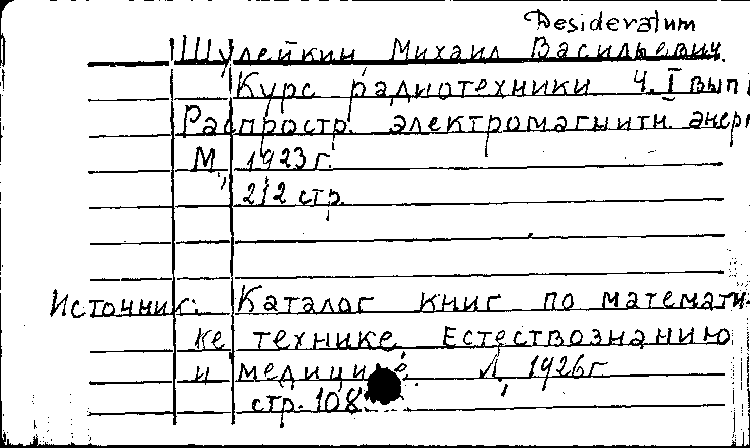 Desideratum
Шулейкин Михаил Васильевич.
Курс радиотехники ч. I вып
Распростр. электромагнитн. энер
М., 1923 г.
212 стр.
Источник: Каталог книг по математи-
ке технике, Естествознанию
и медицине. Л., 1926 г.
стр. 108